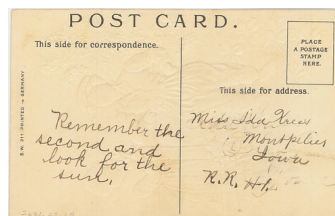 POST CARD.
This side for correspondence.
PLACE
A POSTAGE
STAMP
HERE.
This side for address.
S.W. 311 PRINTED IN GERMANY
Remember the
second and
look for the
sure,
Miss Ida Kress
Montpelier
Iowa
R.R. #1.